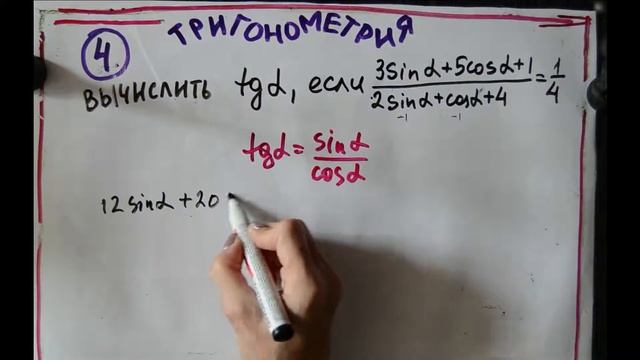 ТРИГОНОМЕТРИЯ
4.
ВЫЧИСЛИТЬ tgα, если (3sinα+5cosα+1)/(2sinα+cosα+4)=1/4
-1 -1
tgα = sinα/cosα
12sinα+20